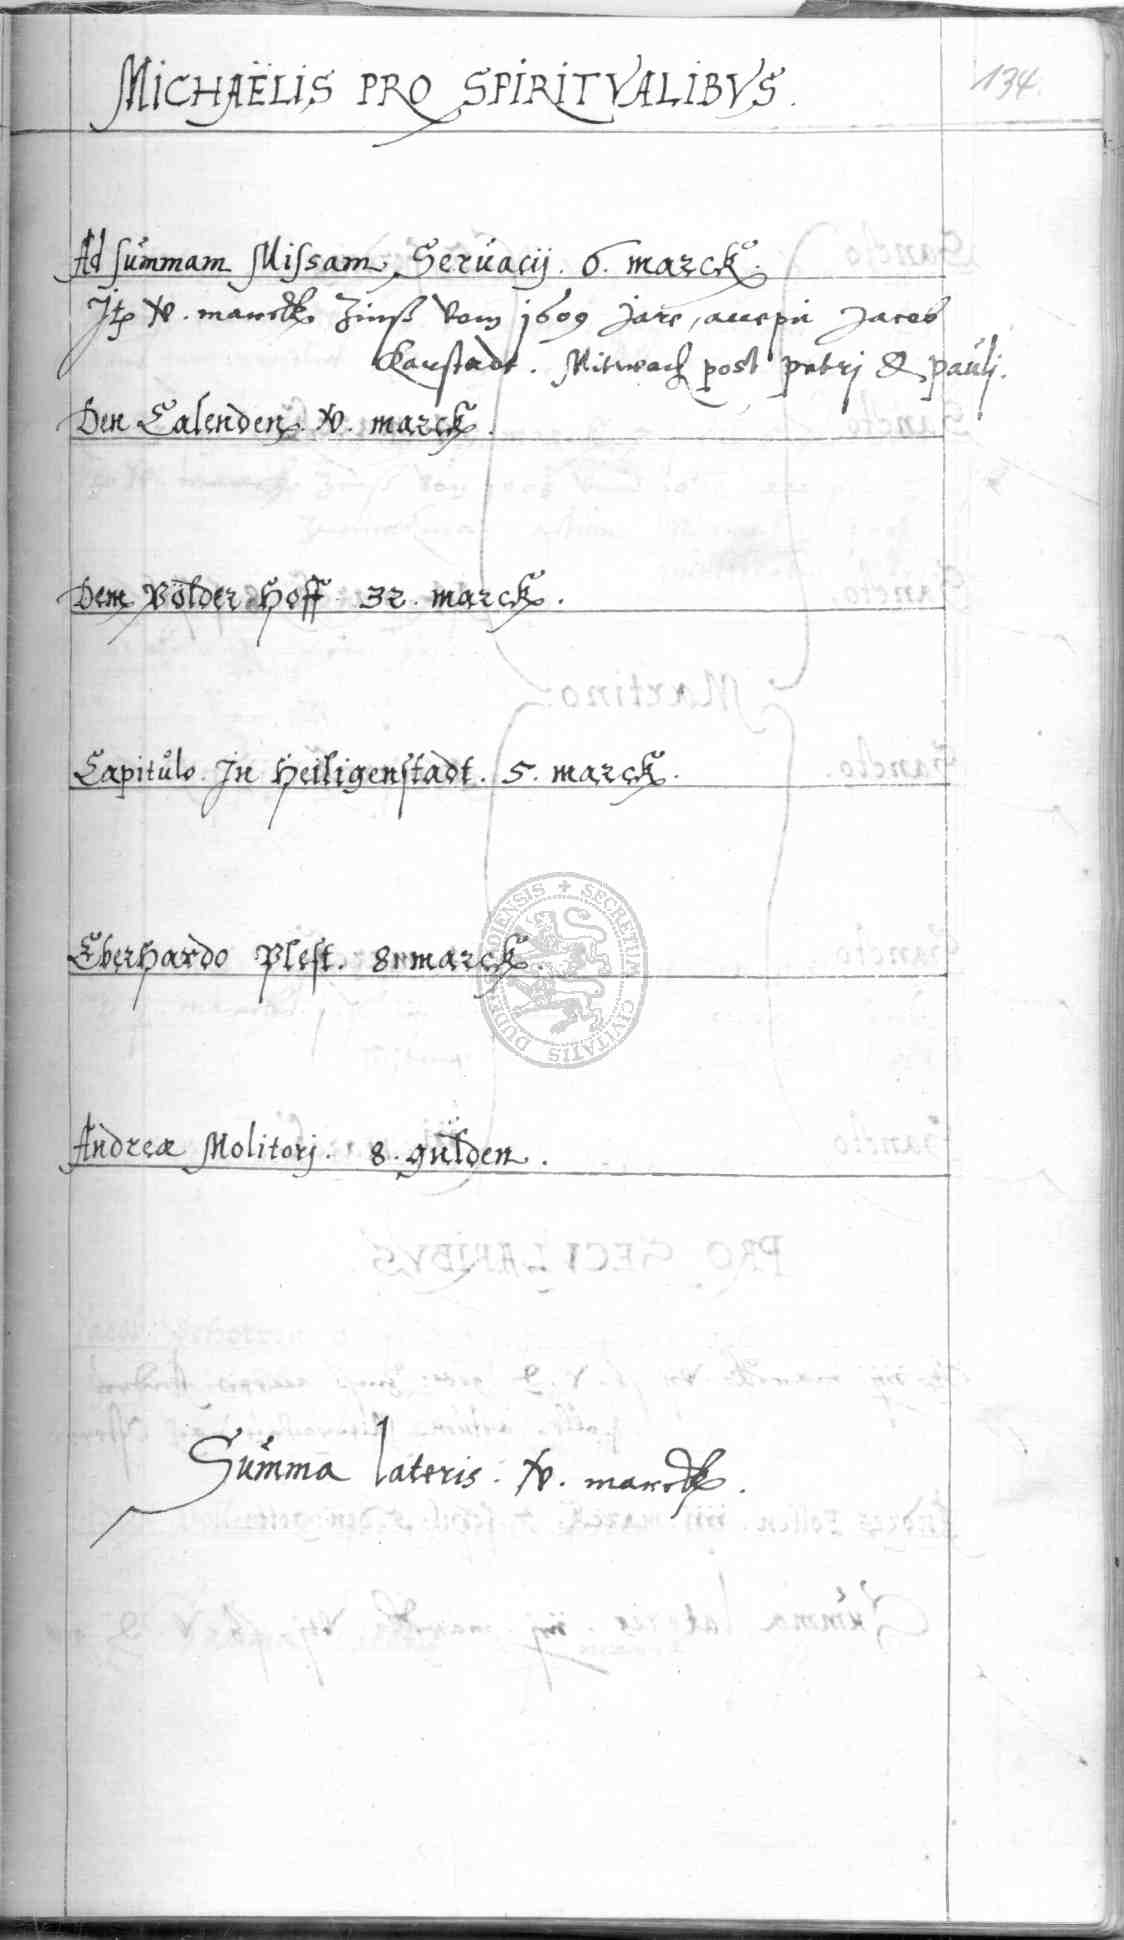 MICHAËLIS PRO SPIRITVALIBVS.
134.
Ad summam Missam Seruacij. 6. marck.
Jtem vi. marck Zinß vom 1609 Jare, accepi Jacob
Karstadt. Mitwach post petrj & paulj.
Den Calenden. vi. marck.
Dem Völder Hoff. 32. marck.
Capitulo Jn Heiligenstadt. 5. marck.
Eberhardo Plest. 8 marck.
Andreæ Molitorj. 8. gülden.
Summa lateris. vi. marck.
SECRETUM CIVITATIS DUDERSTADIENSIS